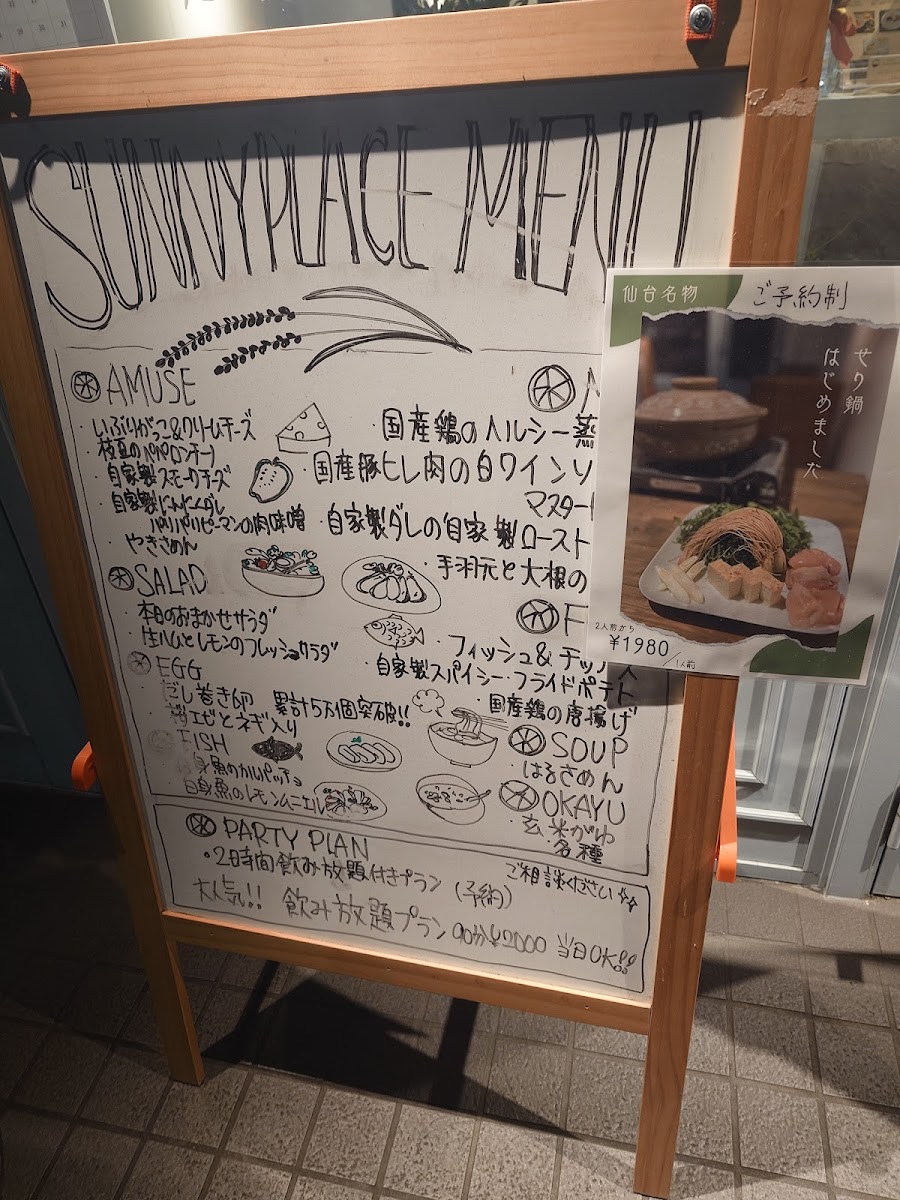 SUNNYPLACE MENU
AMUSE
・いぶりがっこ&クリームチーズ
・枝豆のペペロンチーノ
・自家製スモークチーズ
・自家製にんにくダレ
パリパリピーマンの肉味噌
・やきさめん
SALAD
・本日のおまかせサラダ
・生ハムとレモンのフレッシュサラダ
EGG
・だし巻き卵 累計5万個突破!!
・桜エビとネギ入り
FISH
身魚のカルパッチョ
白身魚のレモンムニエル
・国産鶏のヘルシー蒸
・国産豚ヒレ肉の白ワインソ
マスタード
・自家製ダレの自家製ロースト
・手羽元と大根の
F
・フィッシュ&チップス
・自家製スパイシーフライドポテト
・国産鶏の唐揚げ
SOUP
・はるさめん
OKAYU
・玄米がゆ
各種
PARTY PLAN
・2時間飲み放題付きプラン (予約)
ご相談ください
大人気!! 飲み放題プラン 90分¥2000 当日OK!!
仙台名物
ご予約制
せり鍋
はじめました
2人前から
¥1980/1人前